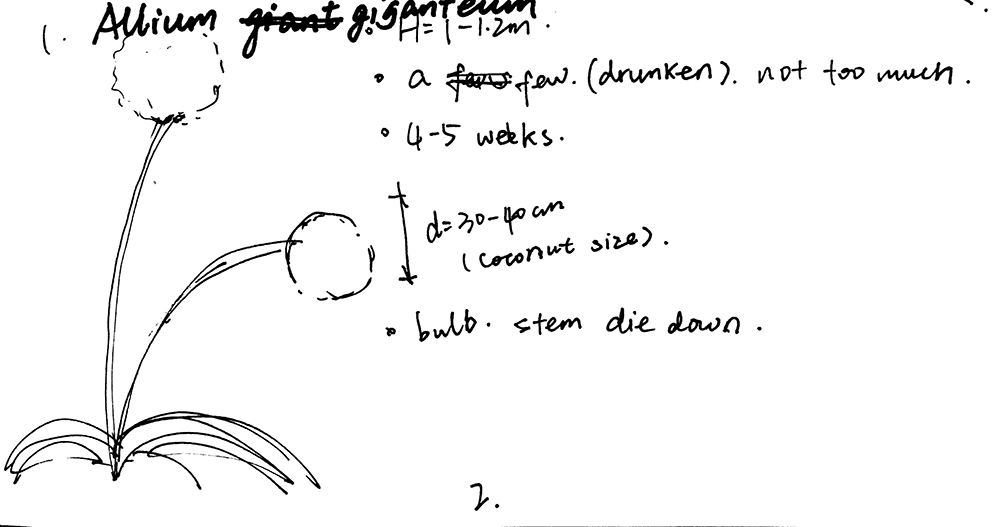 1. Allium giant giganteum
H = 1 - 1.2m.
• a few few. (drunken). not too much.
• 4-5 weeks.
d=30-40cm
(coconut size).
• bulb. stem die down.
2.